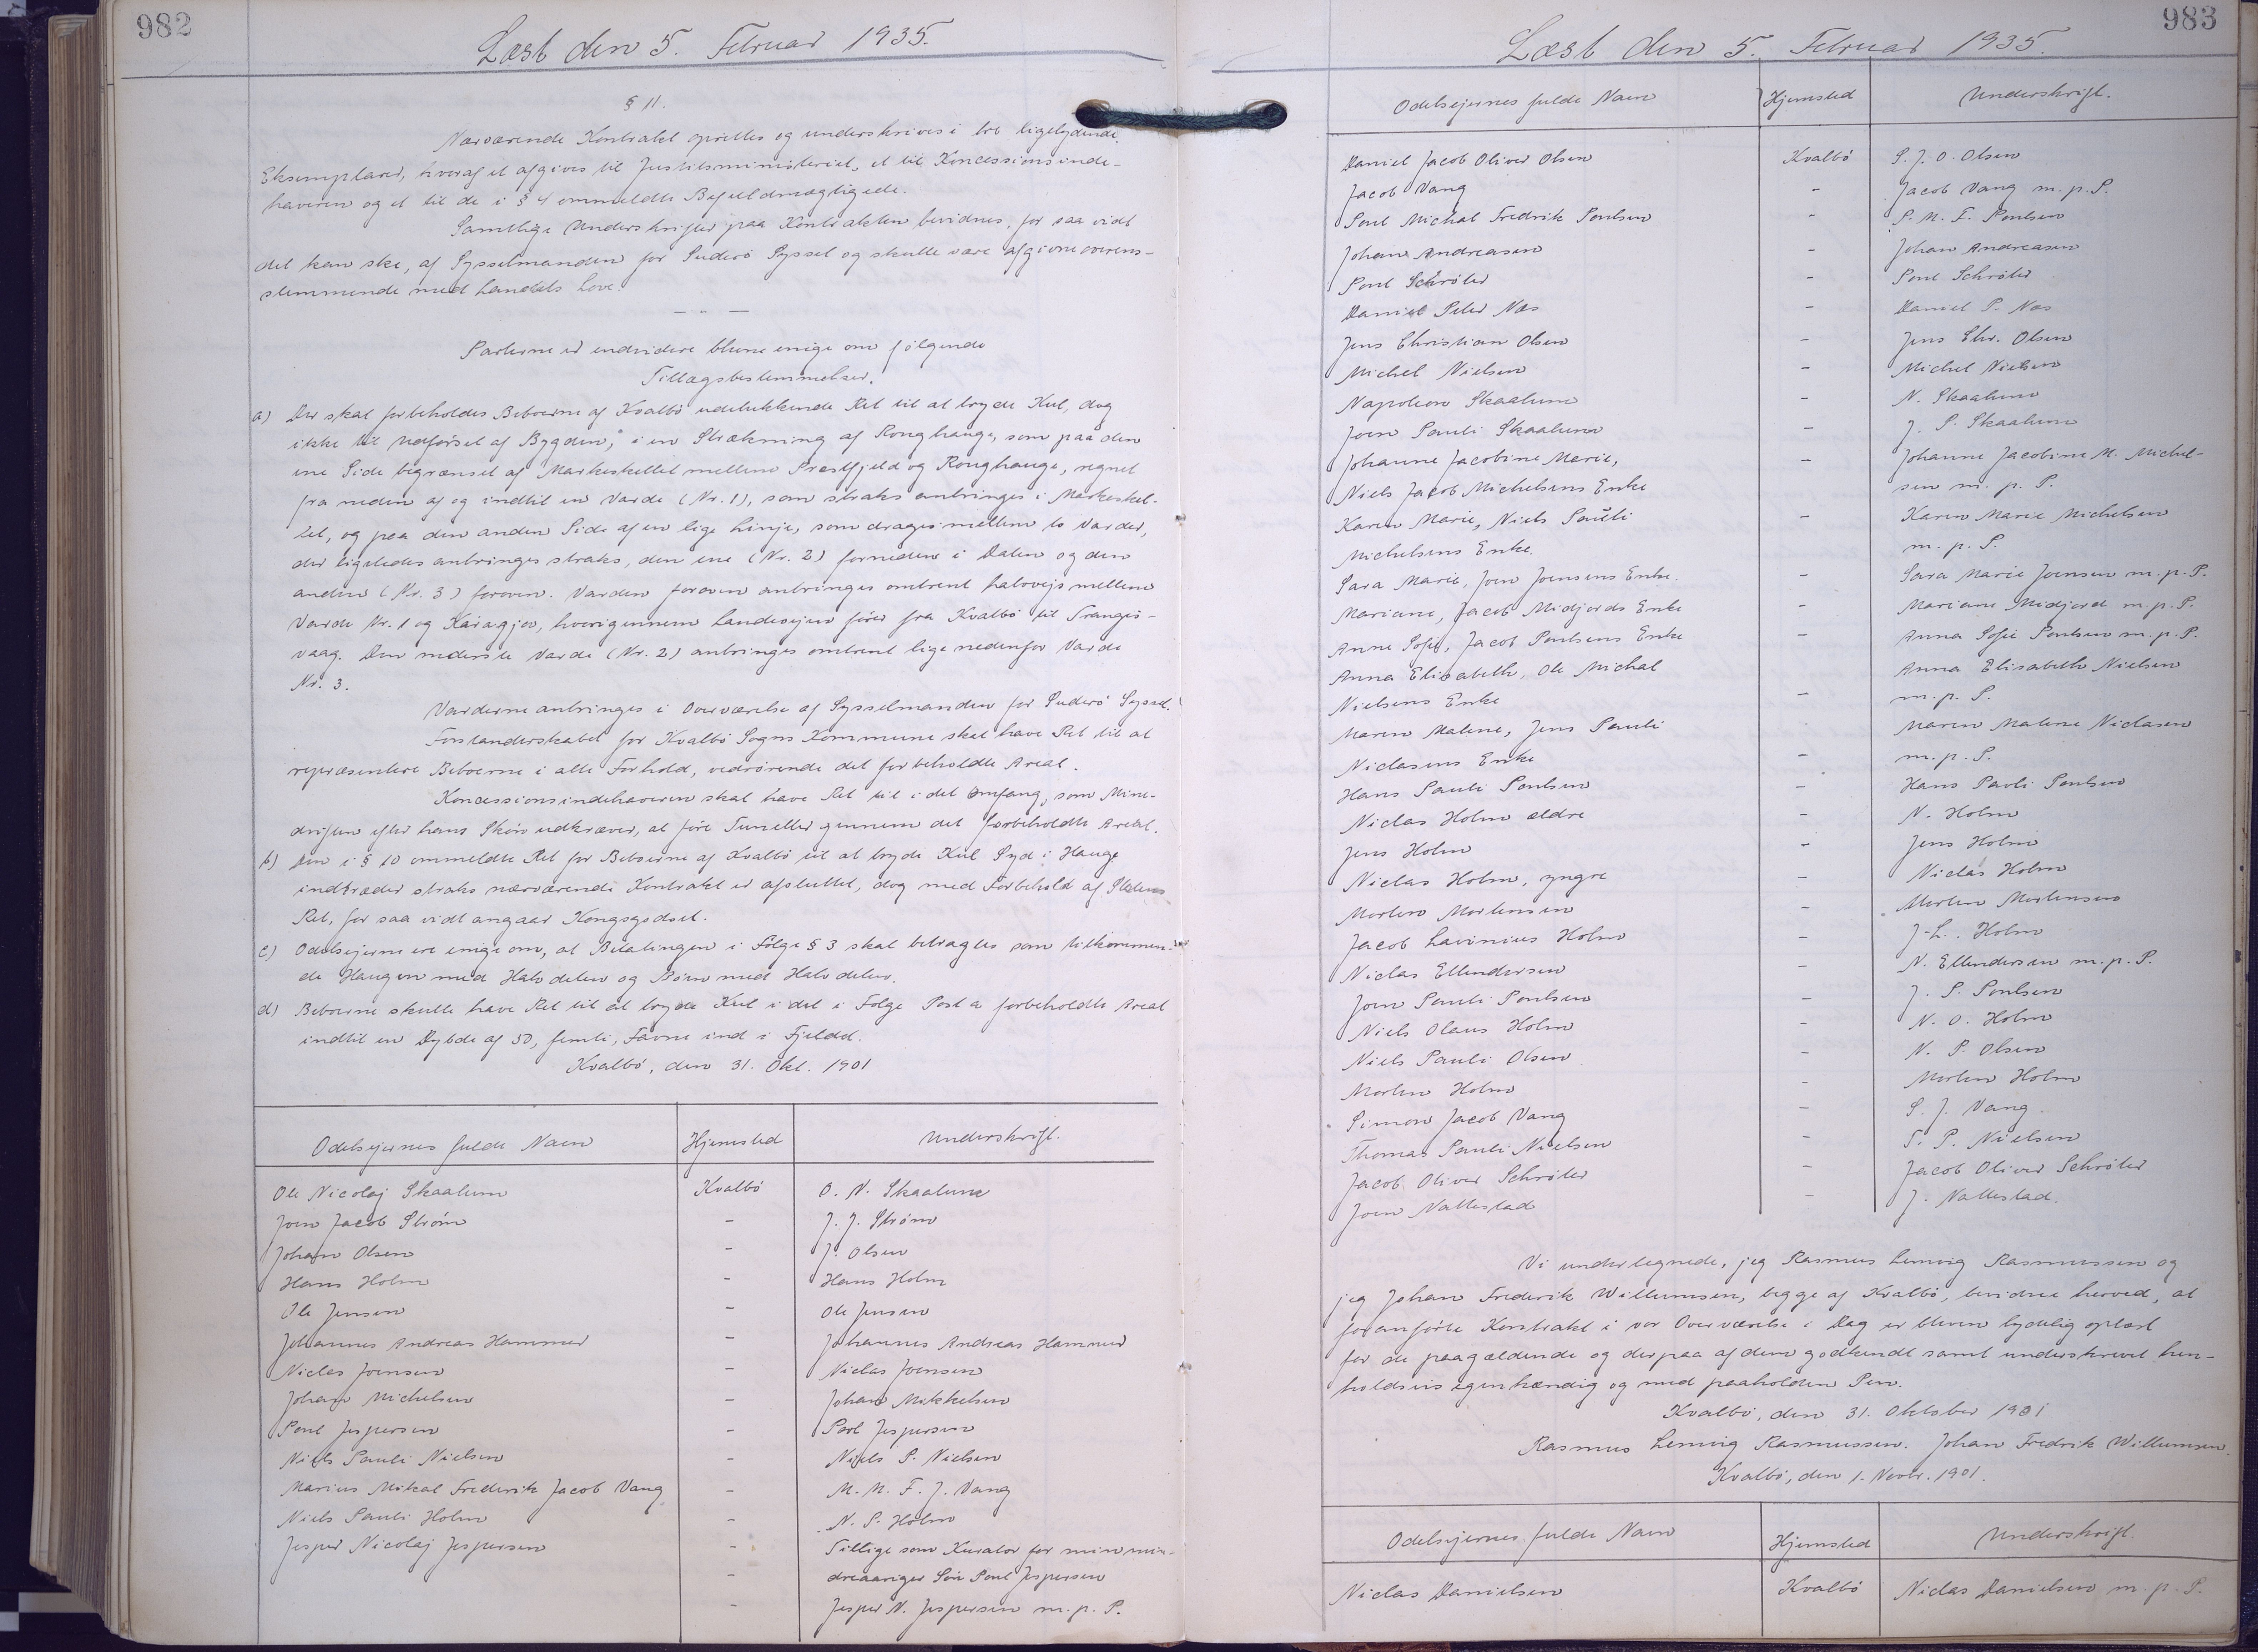 982
Læst den 5. Februar 1935.
§ 11.
Nærværende Kontrakt oprettes og underskrives i tre ligelydende
Eksemplarer, hvoraf et afgives til Justitsministeriet, et til Koncessionsinde-
haveren og et til de i § 4 ommeldte Befuldmægtigede.
Samtlige Underskrifter paa Kontrakten bevidnes, for saa vidt
det kan ske, af Sysselmanden for Suderø Syssel og skulle være afgivne overens-
stemmende med Landets Love.
— — —
Parterne er endvidere blevne enige om følgende
Tillægsbestemmelser.
a) Der skal forbeholdes Beboerne af Kvalbø udelukkende Ret til at bryde Kul, dog
ikke til Udførsel af Bygden, i en Strækning af Ronghauge, som paa den
ene Side begrænset af Markeskellet mellem Præstfjeld og Ronghauge, regnet
fra neden af og indtil en Varde (Nr. 1), som straks anbringes i Markeskel-
let, og paa den anden Side af en lige Linje, som drages mellem to Varder,
der ligeledes anbringes straks, den ene (Nr. 2) forneden i Dalen og den
anden (Nr. 3) foroven. Varden foroven anbringes omtrent halvvejs mellem
Varde Nr. 1 og Káragjov, hvorigennem Landevejen fører fra Kvalbø til Trangis-
vaag. Den nederste Varde (Nr. 2) anbringes omtrent lige nedenfor Varde
Nr. 3.
Varderne anbringes i Overværelse af Sysselmanden for Suderø Syssel.
Forstanderskabet for Kvalbø Sogns Kommune skal have Ret til at
repræsentere Beboerne i alle Forhold, vedrørende det forbeholdte Areal.
Koncessionsindehaveren skal have Ret til i det Omfang, som Mine-
driften efter hans Skøn udkræver, at føre Tuneller gennem det forbeholdte Areal.
b) Den i § 10 ommeldte Ret for Beboerne af Kvalbø til at bryde Kul Syd i Hauge
indtræder straks nærværende Kontrakt er afsluttet, dog med Forbehold af Statens
Ret, for saa vidt angaar Kongsgodset.
c) Odelsejerne ere enige om, at Betalingen i Følge § 3 skal betragtes som tilkommen-
de Haugen med Halvdelen og Bøen med Halvdelen.
d) Beboerne skulle have Ret til at bryde Kul i det i Følge Post a forbeholdte Areal
indtil en Dybde af 50, femti, Favne ind i Fjeldet.
Kvalbø, den 31. Okt. 1901
Odelsejernes fulde Navn Hjemsted Underskrift.
Ole Nicolaj Skaalum Kvalbø O. N. Skaalum
Joen Jacob Strøm - J. J. Strøm
Johan Olsen - J. Olsen
Hans Holm - Hans Holm
Ole Jensen - Ole Jensen
Johannes Andreas Hammer - Johannes Andreas Hammer
Niclas Joensen - Niclas Joensen
Johan Michelsen - Johan Mikkelsen
Poul Jespersen - Poul Jespersen
Niels Pauli Nielsen - Niels P. Nielsen
Marius Mikal Frederik Jacob Vang - M. M. F. J. Vang
Niels Pauli Holm - N. P. Holm
Jesper Nicolaj Jespersen - Tillige som Kurator for min min-
- dreaarige Søn Poul Jespersen
- Jesper N. Jespersen m. p. P.
983
Læst den 5. Februar 1935.
Odelsejernes fulde Navn Hjemsted Underskrift.
Daniel Jacob Oliver Olsen Kvalbø D. J. O. Olsen
Jacob Vang - Jacob Vang m. p. P.
Poul Michal Fredrik Poulsen - P. M. F. Poulsen
Johan Andreasen - Johan Andreasen
Poul Schrøter - Poul Schrøter
Daniel Peter Næs - Daniel P. Næs
Jens Christian Olsen - Jens Chr. Olsen
Michel Nielsen - Michel Nielsen
Napoleon Skaalum - N. Skaalum
Joen Pauli Skaalum - J. P. Skaalum
Johanne Jacobine Marie, - Johanne Jacobine M. Michel-
Niels Jacob Michelsens Enke sen m. p. P.
Karen Marie, Niels Pauli - Karen Marie Michelsen
Michelsens Enke. m. p. P.
Sara Marie, Joen Joensens Enke. - Sara Marie Joensen m. p. P.
Mariane, Jacob Midjords Enke - Mariane Midjord m. p. P.
Anne Sofie, Jacob Poulsens Enke - Anna Sofie Poulsen m. p. P.
Anna Elisabeth, Ole Michal Anna Elisabeth Nielsen
Nielsens Enke - m. p. P.
Maren Malene, Jens Pauli Maren Malene Niclasen
Niclasens Enke - m. p. P.
Hans Pauli Poulsen - Hans Pauli Poulsen
Niclas Holm ældre - N. Holm
Jens Holm - Jens Holm
Niclas Holm, yngre - Niclas Holm
Morten Mortensen - Morten Mortensen
Jacob Lavinius Holm - J. L. Holm
Niclas Ellendersen - N. Ellendersen m. p. P.
Joen Pauli Poulsen - J. P. Poulsen
Niels Olaus Holm - N. O. Holm
Niels Pauli Olsen - N. P. Olsen
Morten Holm - Morten Holm
Simon Jacob Vang - S. J. Vang.
Thomas Pauli Nielsen - T. P. Nielsen
Jacob Oliver Schrøter - Jacob Oliver Schrøter
Joen Nattestad - J. Nattestad.
Vi undertegnede, jeg Rasmus Lemvig Rasmussen og
jeg Johan Frederik Willumsen, begge af Kvalbø, bevidne herved, at
foranførte Kontrakt i vor Overværelse i Dag er bleven tydelig oplæst
for de paagældende og derpaa af dem godkendt samt underskrevet hen-
holdsvis egenhændig og med paaholden Pen.
Kvalbø, den 31. Oktober 1901
Rasmus Lemvig Rasmussen. Johan Fredrik Willumsen.
Kvalbø, den 1. Novbr. 1901.
Odelsejernes fulde Navn Hjemsted Underskrift.
Niclas Danielsen Kvalbø Niclas Danielsen m. p. P.